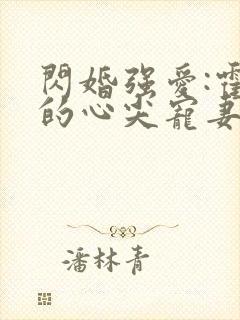 閃婚強愛:
的心尖寵妻
潘林青